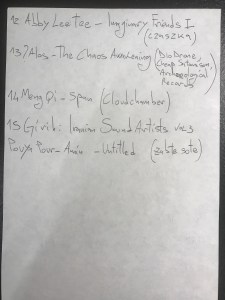 12 Abby Lee Tee - Imaginary Friends I
(czaszka)
13 ?Alos - The Chaos Awakening (Bio Drone,
Cheap Satanism,
Archaeological
Records)
14 Meng Qi - Span (Cloudchamber)
15 Girih: Iranian Sound Artists vol.3
Pouya Pour-Amin - Untitled (zabte sote)